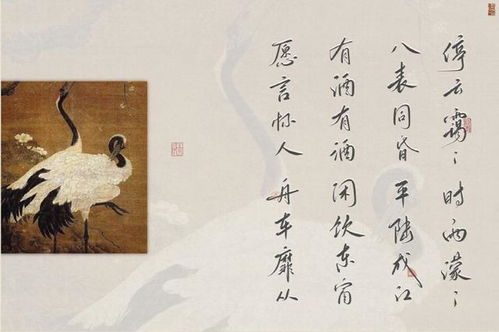 停云霭〻时雨濛〻
八表同昏平陆成江
有酒有酒闲饮东窗
愿言怀人舟车靡从